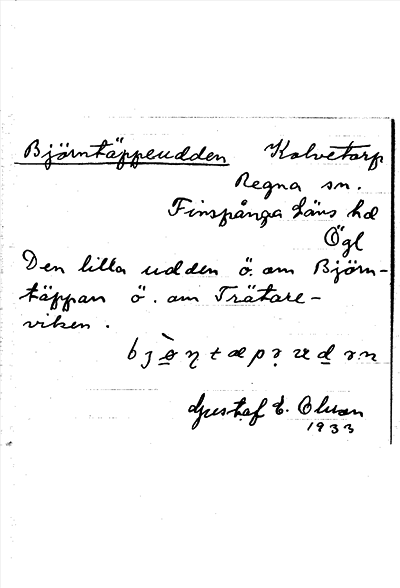 Björntäppeudden Kolvetorp
Regna sn.
Finspånga läns hd
Ögl
Den lilla udden ö. om Björn-
täppan ö. om Trätare-
viken.
Gustaf E. Olsson
1933